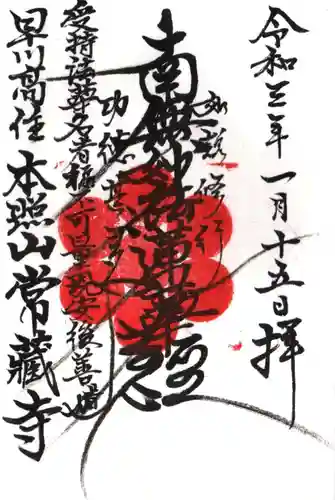 令和三年一月十五日拝
如説修行
南無妙法蓮華経
功徳
受持法華名者福不可量現安後善
早川高住 本照山常蔵寺